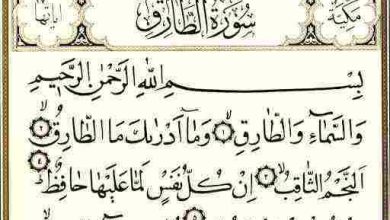 سُورَةُ الطَّارِقِ
مَكِّيَّة
آيَاتُهَا
بِسْمِ اللَّهِ الرَّحْمَٰنِ الرَّحِيمِ
وَالسَّمَآءِ وَالطَّارِقِ ١ وَمَآ أَدْرَىٰكَ مَا الطَّارِقُ ٢
النَّجْمُ الثَّاقِبُ ٣ إِن كُلُّ نَفْسٍ لَّمَّا عَلَيْهَا حَافِظٌ ٤